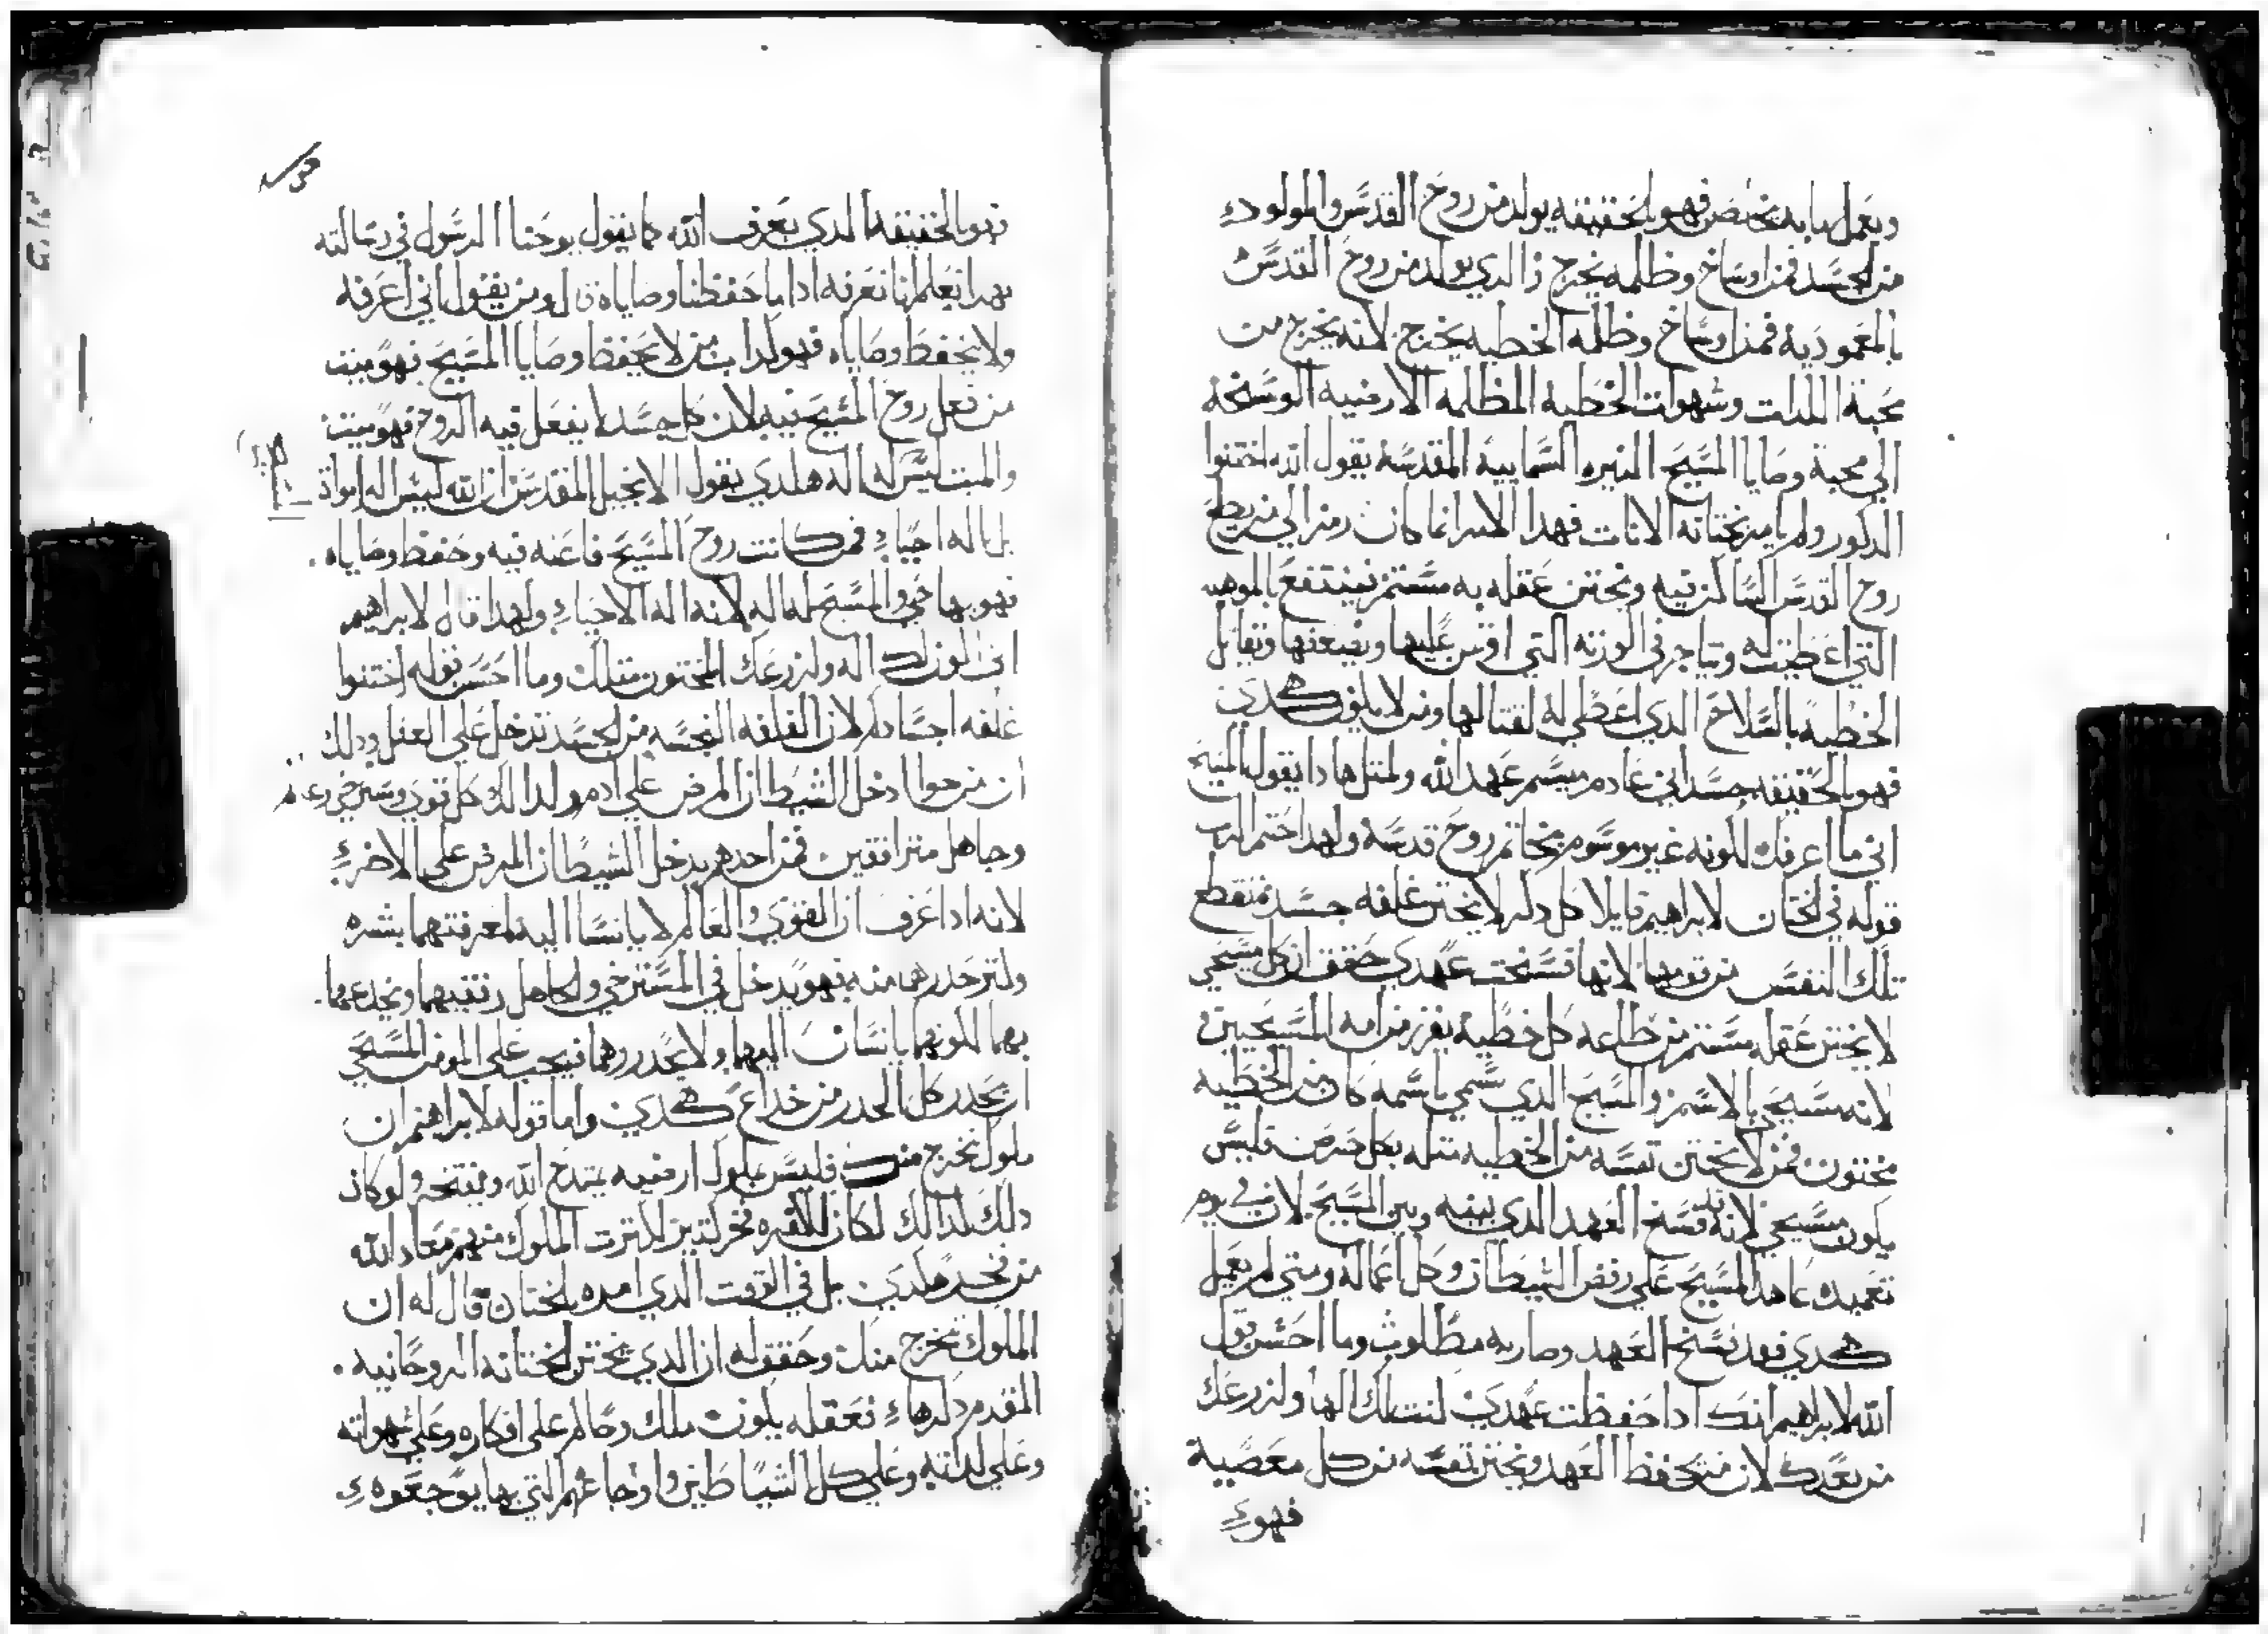 ويعمل بما به يختص فهو بالحقيقه يولد من روح القدس والمولود
من الجسد فمن اوساخ وظلمه يخرج والدي يولد من روح القدس
بالمعموديه فمن اوساخ وظلمه الخطيه يخرج لانه يخرج من
محبة اللدات وشهوات الخطية المظلمه الارضيه الوسخه
الي محبة وصايا المسيح المنيره السماييه المقدسه يقول الله اختنوا
الدكور ولم يامر بختانه الانات فهدا الامر انما كان رمز الي من يطيع
روح القدس الساكن فيه ويختن عقله به مستمر فينتفع بالموهبه
التي اعطيت له ويتاجر في الوزنه التي اوتمن عليها ويضعفها ويقاتل
الخطيه بالسلاح الدي اعطي له لقتالها ومن لا يكون هكدي
فهو بالحقيقه جسداني عادم ميسم عهد الله ولمثل هادا يقول المسيح
اني ما اعرفك لكونه غير موسوم بخاتم روح قدسه ولهدا ختم الرب
قوله في الختان لابراهيم قايلا كل دكر لا يختن غلفه جسده تنقطع
تلك النفس من قومها لانها فسخت عهدي حقق ان كل مسيحي
لا يختن عقله مستمر من طلعه كل خطيه يفرز من امه المسيحيين
لانه مسيحي بالاسم والمسيح الدي تسمي باسمه كان من الخطيه
مختون فمن لا يختن نفسه من الخطيه متله بكل حرص فليس
يكون مسيحي لانه قد فسخ العهد الدي بينه وبين المسيح لان في يوم
تعميده عاهد المسيح علي رفض الشيطان وكل اعماله ومتي لم يعمل
هكدي فقد فسخ العهد وصار به مطلوب وما احسن قول
الله لابراهيم انك ادا حفظت عهدي لنت لك الها ولزرعك
من بعدك لان من يحفظ العهد ويختن نفسه من كل معصية
فهو
فهو بالحقيقه الدي يعرف الله كما يقول يوحنا الرسول في رسالته
بهدا نعلم اننا نعرفه ادا ما حفظنا وصاياه قال ومن يقول اني اعرفه
ولا يحفظ وصاياه فهو كداب من لا يحفظ وصايا المسيح فهو ميت
من فعل روح المسيح فيه لان كل جسد لا يفعل فيه الروح فهو ميت
والميت ليس له اله هكدي يقول الانجيل المقدس ان الله ليس اله اموات
بل اله احياء فمن كانت روح المسيح فاعله فيه وحفظ وصاياه
فهو بها حي والمسيح له اله لانه اله الاحياء ولهدا قال لابراهيم
اني اكون لك اله ولزرعك المختون متلك وما احسن قوله اختنوا
غلفه اجسادكم لان الغلفه النجسه من الجسد تدخل علي العقل ودلك
ان من حوا ادخل الشيطان المرض علي ادم ولدالك كل قوي وسترخي وعالم
وجاهل مترافقين فمن احدهم يدخل الشيطان المرض علي الاخر
لانه ادا عرف ان القوي والعالم لا يانسا اليه لمعرفتهما بشره
ولتحدرهما منه فهو يدخل في المسترخي والجاهل رفقيهما ويخدعهما
بهما لكونهما يانسان اليهما ولا يحدروهما فيجب علي المومن المسيحي
ان يحدر كل الحدر من خداع هكدي واما قوله لابراهيم ان
ملوك تخرج منك فليس بملوك ارضيه يمتدح الله ويفتخر ولو كان
دلك كدالك لكان للكفره فخر كتير لكترت الملوك منهم معاد الله
من فخر هكدي بل في الوقت الدي امره بالختان قال له ان
الملوك تخرج منك وحقق له ان الدي يختن الختانه الروحانيه
المقدم دكرها فعقله يكون ملك وحاكم علي افكاره وعلي شهواته
وعلي لداته وعلي كل الشياطين واوجاعهم التي بها يوجعوه